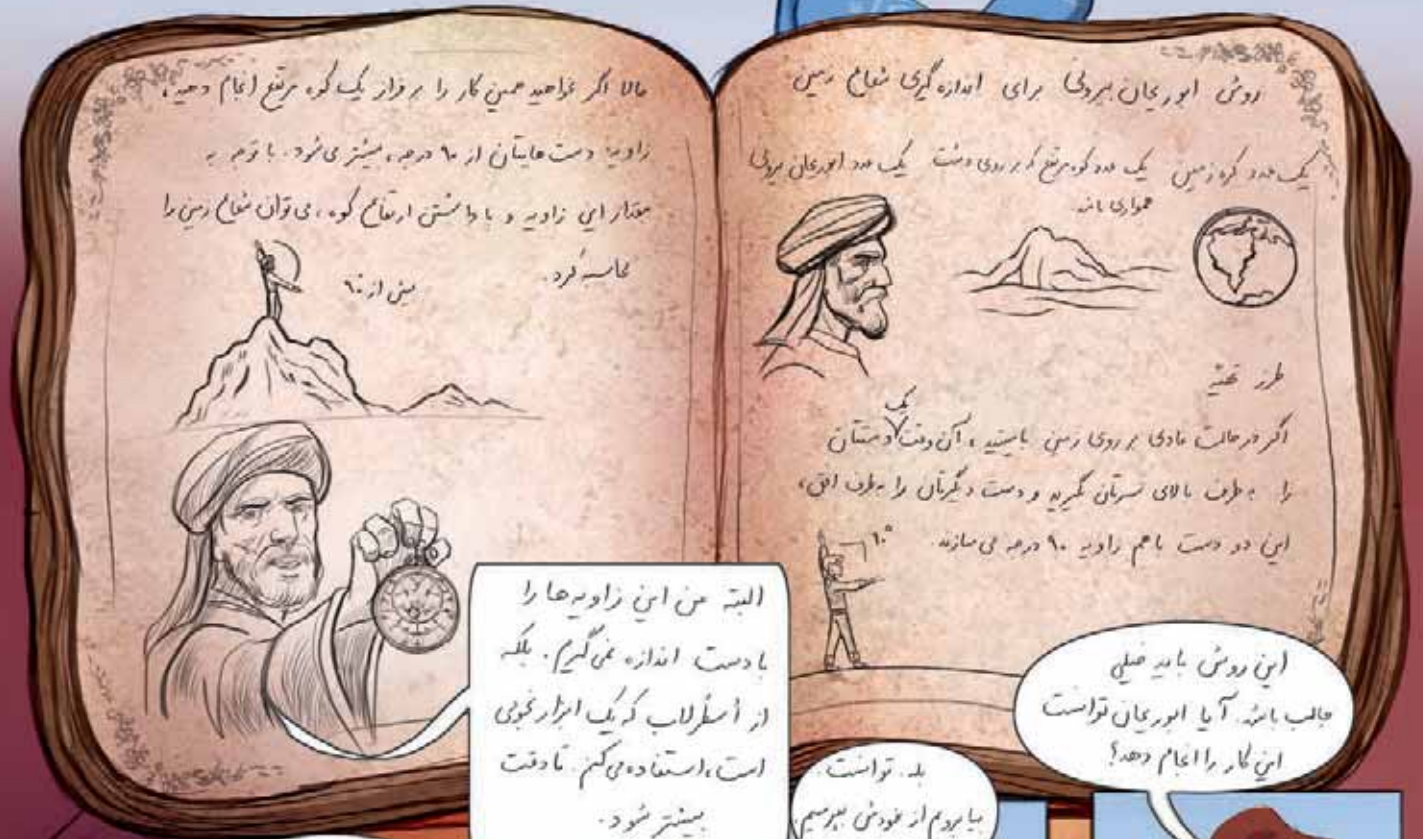 روش ابوریحان بیرونی برای اندازه گیری شعاع زمین
یک عدد کره زمین
یک عدد کوه مرتفع که بر روی دشت
همواری باشد.
یک عدد ابوریحان بیرونی
طرز تهیه
اگر در حالت عادی بر روی زمین بایستید، آن وقت یک دستتان
را به طرف بالای سرتان بگیرید و دست دیگرتان را به طرف افق،
این دو دست با هم زاویه ۹۰ درجه می سازند.
۹۰°
حالا اگر بخواهید همین کار را بر فراز یک کوه مرتفع انجام دهید،
زاویه دست هایتان از ۹۰ درجه، بیشتر می شود. با توجه به
مقدار این زاویه و با دانستن ارتفاع کوه، می توان شعاع زمین را
محاسبه کرد.
بیش از ۹۰
البته من این زاویه ها را
با دست اندازه نمی گیرم. بلکه
از أسطُرلاب که یک ابزار نجومی
است، استفاده می کنم. تا دقت
بیشتر شود.
این روش باید خیلی
جالب باشد. آیا ابوریحان توانست
این کار را انجام دهد؟
بله. توانست.
بیا برویم از خودش بپرسیم.